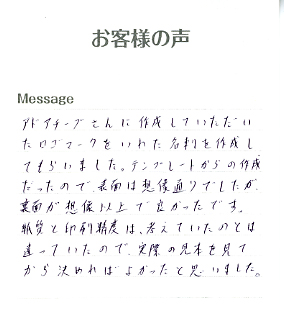 お客様の声
Message
アドアチーブさんに作成していただい
たロゴマークをいれた名刺を作成し
てもらいました。テンプレートからの作成
だったので、表面は想像通りでしたが、
裏面が想像以上で良かったです。
紙質と印刷精度は、考えていたのとは
違っていたので、実際の見本を見て
から決めればよかったと思いました。